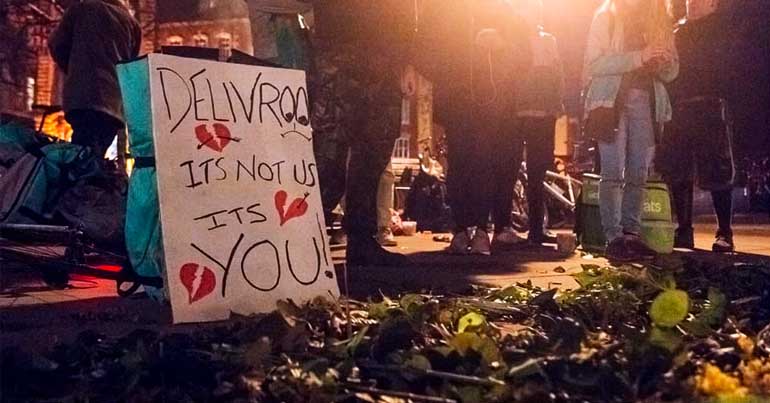 DELIVROO
ITS NOT US
ITS
YOU!
eats